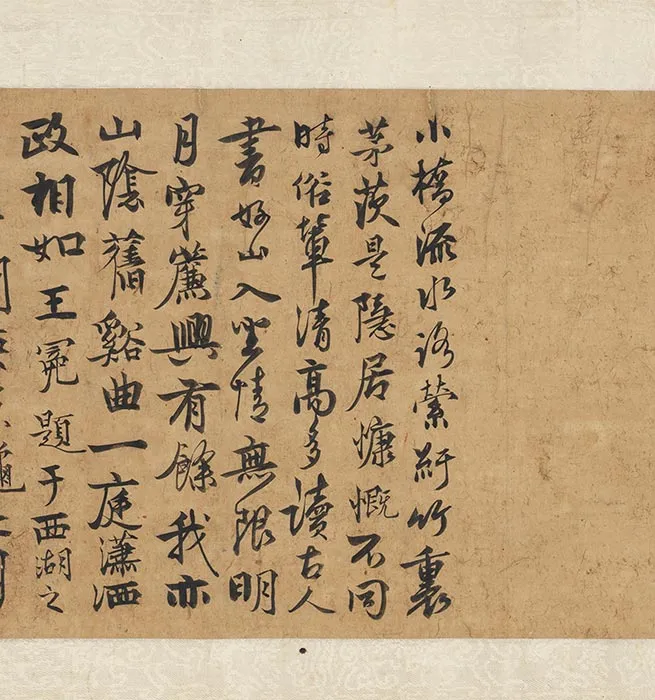 小橋流水路縈紆竹裏
茅茨是隱居慷慨不同
時俗輩清高多讀古人
書好山入坐情無限明
月穿簾興有餘我亦
山陰舊谿曲一庭瀟洒
政相如王冕題于西湖之